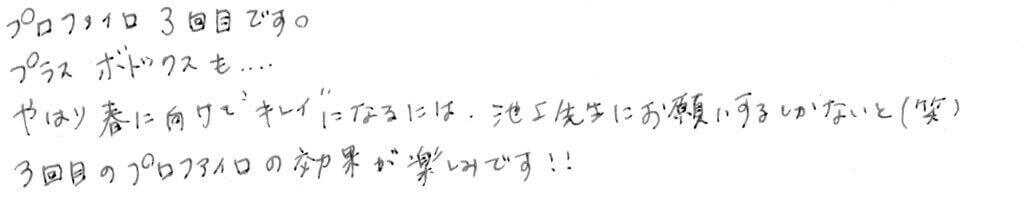 プロファイロ 3回目です。
プラス ボトックスも....
やはり春に向けて"キレイ"になるには、池上先生にお願いするしかないと(笑)
3回目のプロファイロの効果が楽しみです!!